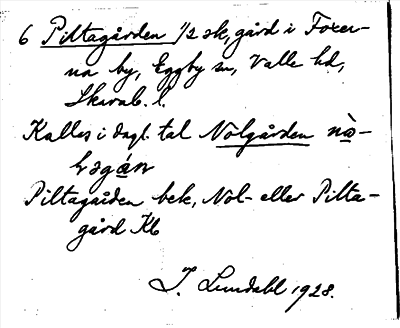 6 Piltagården 1/2 sk, gård i Foxer-
na by, Eggby sn, Valle hd,
Skarab. l.
Kallas i dagl. tal Nolgården nò-
lvəgán
Piltagården bek, Nol- eller Pilta-
gård Kb
I. Lundahl 1928.